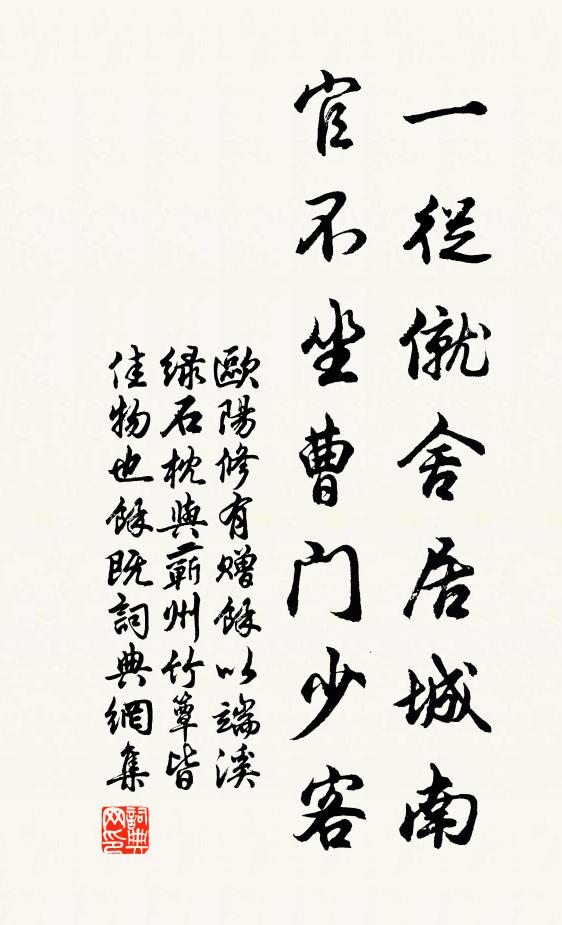 一從僦舍居城南
官不坐曹门少客
歐陽修有赠餘以端溪
绿石枕與蕲州竹簟皆
佳物也餘既詞典網集
詞典网印